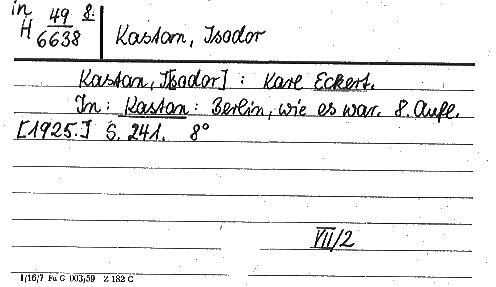 in
H 49 8.
6638
Kastan, Isodor
Kastan, I[sodor] : Karl Eckert.
In: Kastan: Berlin, wie es war. 8. Aufl.
[1925.] S. 241. 8°
VII/2
1/16/7 Fu G 003/59 Z 182 C